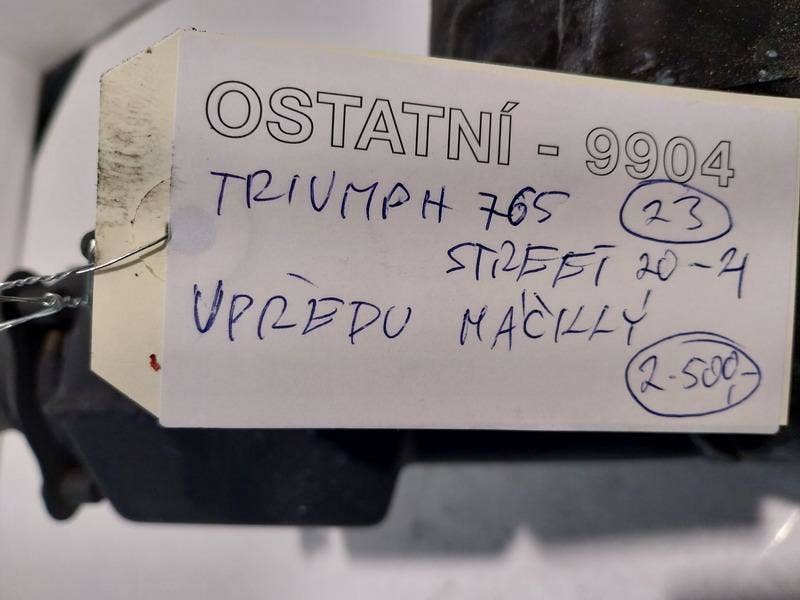 OSTATNÍ - 9904
TRIUMPH 765 23
STREET 20-21
VPŘEDU MAČKLÝ
2.500,-